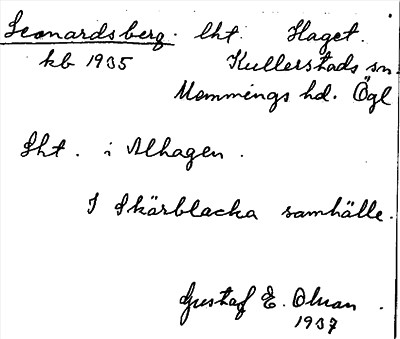 Leonardsberg. lht. Haget.
kb 1935 Kullerstads sn.
Memmings hd. Ögl
Lht. i Alhagen.
I Skärblacka samhälle.
Gustaf E. Olsson.
1937